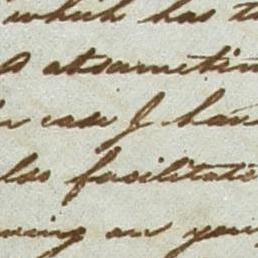 which has t
at sametim
in case I hav
also facilitate
wing on your